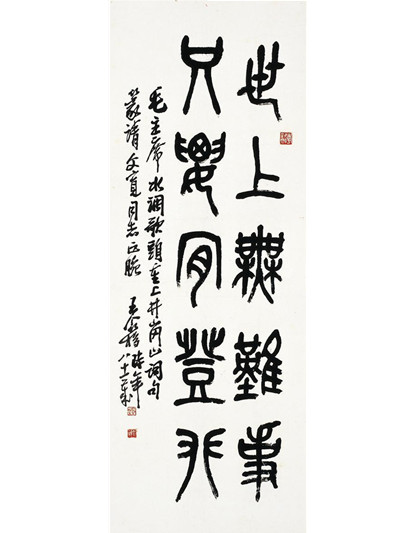 世上無難事
只要肎登𠬜
毛主席水調歌頭重上井崗山詞句
篆請文寬同志正腕 王个簃 年八十二